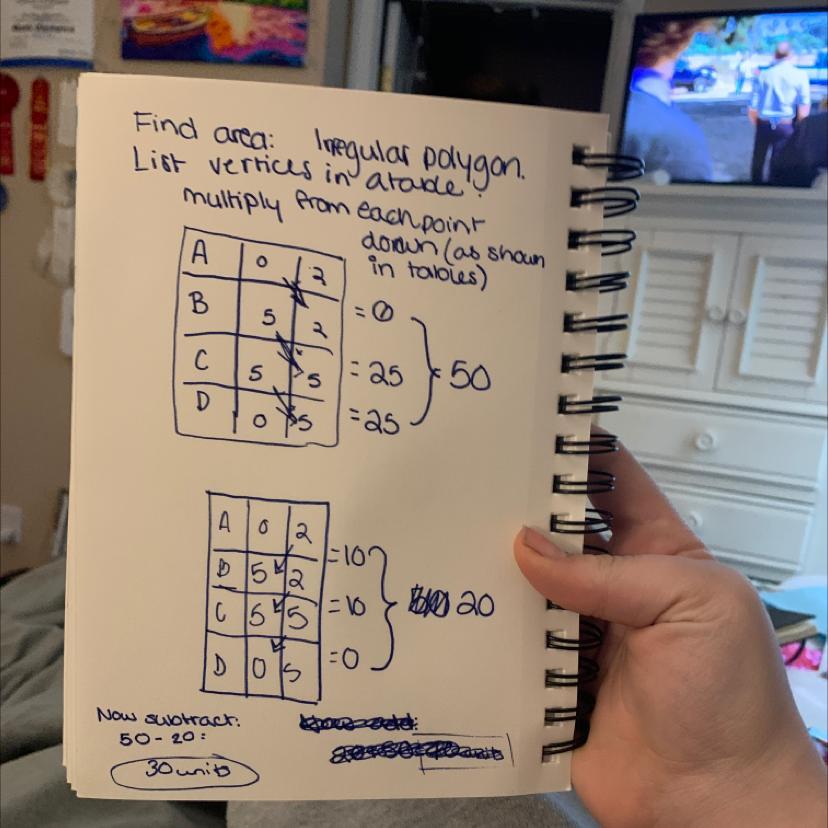 Find area: Irregular polygon.
List vertices in a table.
multiply from each point
down (as shown
in tables)
A 0 2
B 5 2 = 0
C 5 5 = 25
D 0 5 = 25
50
A 0 2
B 5 2 = 10
C 5 5 = 10
D 0 5 = 0
20
Now subtract:
50 - 20:
30 units